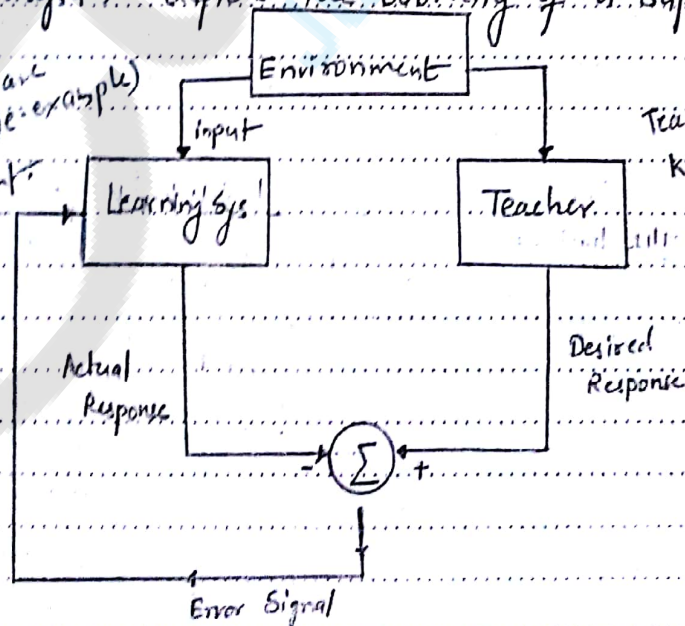 Environment
input
Learning Sys'
Teacher
Actual
Response
Desired
Response
- Σ +
Error Signal